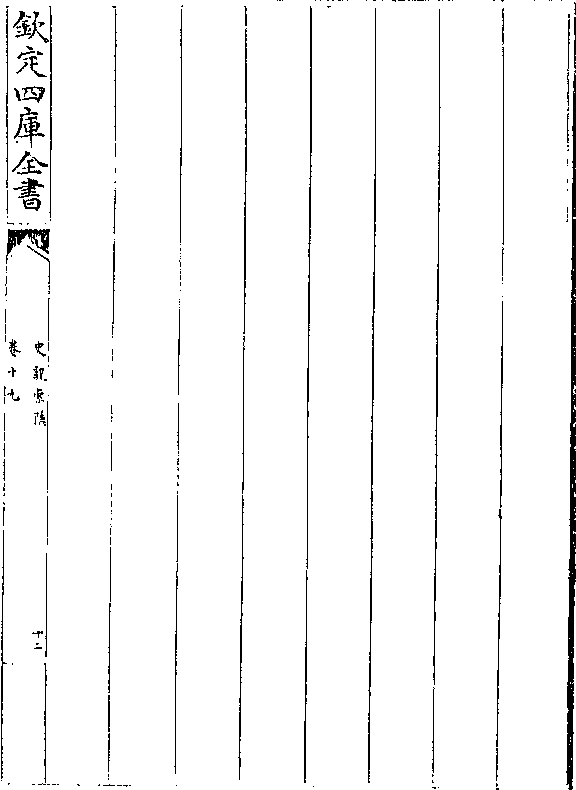 欽定四庫全書
史記索隱
卷十九
十二